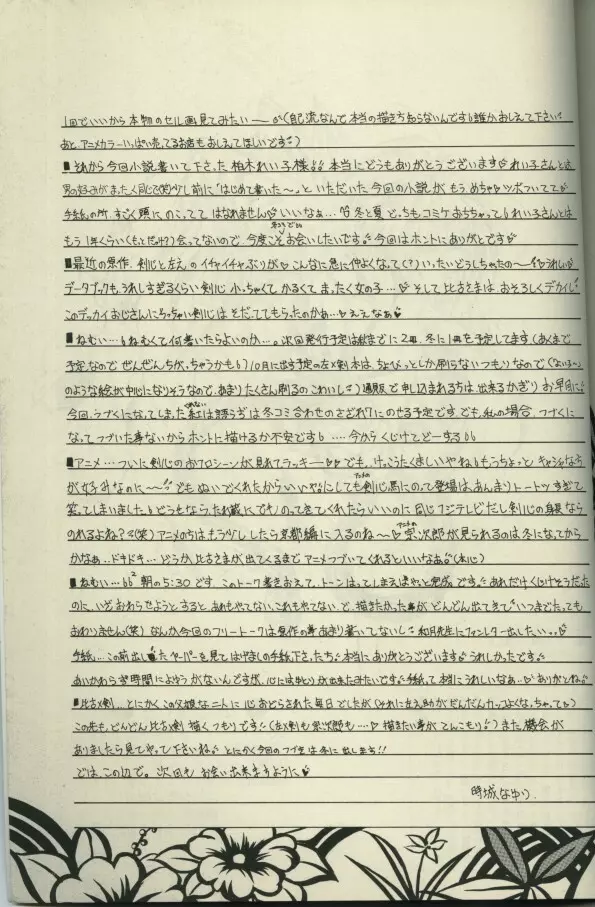 1回でいいから本物のセル画見てみたい――(自己流なんで本当の描き方知らないんです 誰か、おしえて下さい
あと、アニメカラーいっぱい売ってるお店もおしえてほしいです)
■それから今回小説書いて下さった柏木れい子様 本当にどうもありがとうございます れい子さんとは
男の好みがまったく同じで(笑)少し前に「はじめて書いた〜」といただいた今回の小説がもうめちゃツボついてて
手紙の所、すごく頭にのこってて はなれません いいなぁ… 冬と夏どっちもコミケおちちゃって れい子さんとは
もう1年くらい(もとだっけ?)会ってないので、今度こそお会いしたいです 今回はホントにありがとです
■最近の原作、剣心と左えのイチャイチャぶりが こんなに急に仲よくなって(?)いったいどうしちゃったの〜 うれしい
データブックも、うれしすぎるくらい剣心小っちゃくて かるくて まったく女の子… そして比古さまは おそろしくデカイし
このデッカイおじさんにちっちゃい剣心は そだててもらったのかぁ…ええなぁ
■ねむい… ねむくて何書いたらよいのか…。次回発行予定は秋までに2冊、冬に1冊を予定してます(あくまで
予定なので ぜんぜんちがっちゃうかも)10月に出す予定の左×剣本は、ちょびっとしか刷らないつもりなので
のような絵が中心になりそうなので、あまりたくさん刷るの こわいし)通販で申し込まれる方は出来るかぎり お早目に
今回、うつづくになってしまった 紅は誘う は冬コミ合わせの さざれ7にのせる予定です でも、私の場合、つづくに
なって つづいた事ないから ホントに描けるか不安です …今からくじけてどーする
■アニメ…ついに剣心のおフロシーンが見れてラッキー でも、けっこうたくましいやね もうちょっと キャシャな方
が女子みなのに〜 でもぬいでくれたからいいや にしても剣心馬にのって登場は、あんまりトートツすぎて
笑ってしまいました どうもならたれ蔵にでも のって来てくれたらいいのに 同じフジテレビだし剣心の身長なら
のれるよね?(笑) アニメの方は もう少ししたら京都編に入るのね〜 アニメの宗次郎が見られるのは冬になってから
かなぁ…ドキドキ… どうか、比古さまが出てくるまでアニメつづいてくれるといいなぁ(本心)
■ねむい… 朝の5:30です、このトーク書きおえて、トーンはってしまえばやっと完成です あれだけくじけそうだった
のに、いざおわらせようとすると あれもやてない、これもやてない、で、描きたかった事が どんどん出てきて いつまでたっても
おわりません(笑) なんか、今回のフリートークは原作の事あまり書いてないし 和月先生にファンレター出したい
手紙…この前出したペーパーを見て はげましの手紙下さった方 本当にありがとうございます うれしかったです
あいかわらず時間によゆうがないんですが、心にはゆとりが出来たみたいです 手紙って本当にうれしいなぁ ありがとね
■比古×剣…とにかくこの父娘な二人に 心おどらされた毎日でしたが(それに左之助がだんだんカッコよくな、ちゃって)
この先も、どんどん比古×剣描くつもりです (左×剣も宗次郎も… 描きたい事が てんこもり)また、機会が
ありましたら見てやって下さいね とにかく今回のつづきは冬に出します!!
では、この辺で。次回も お会い出来ますように
時城なゆり